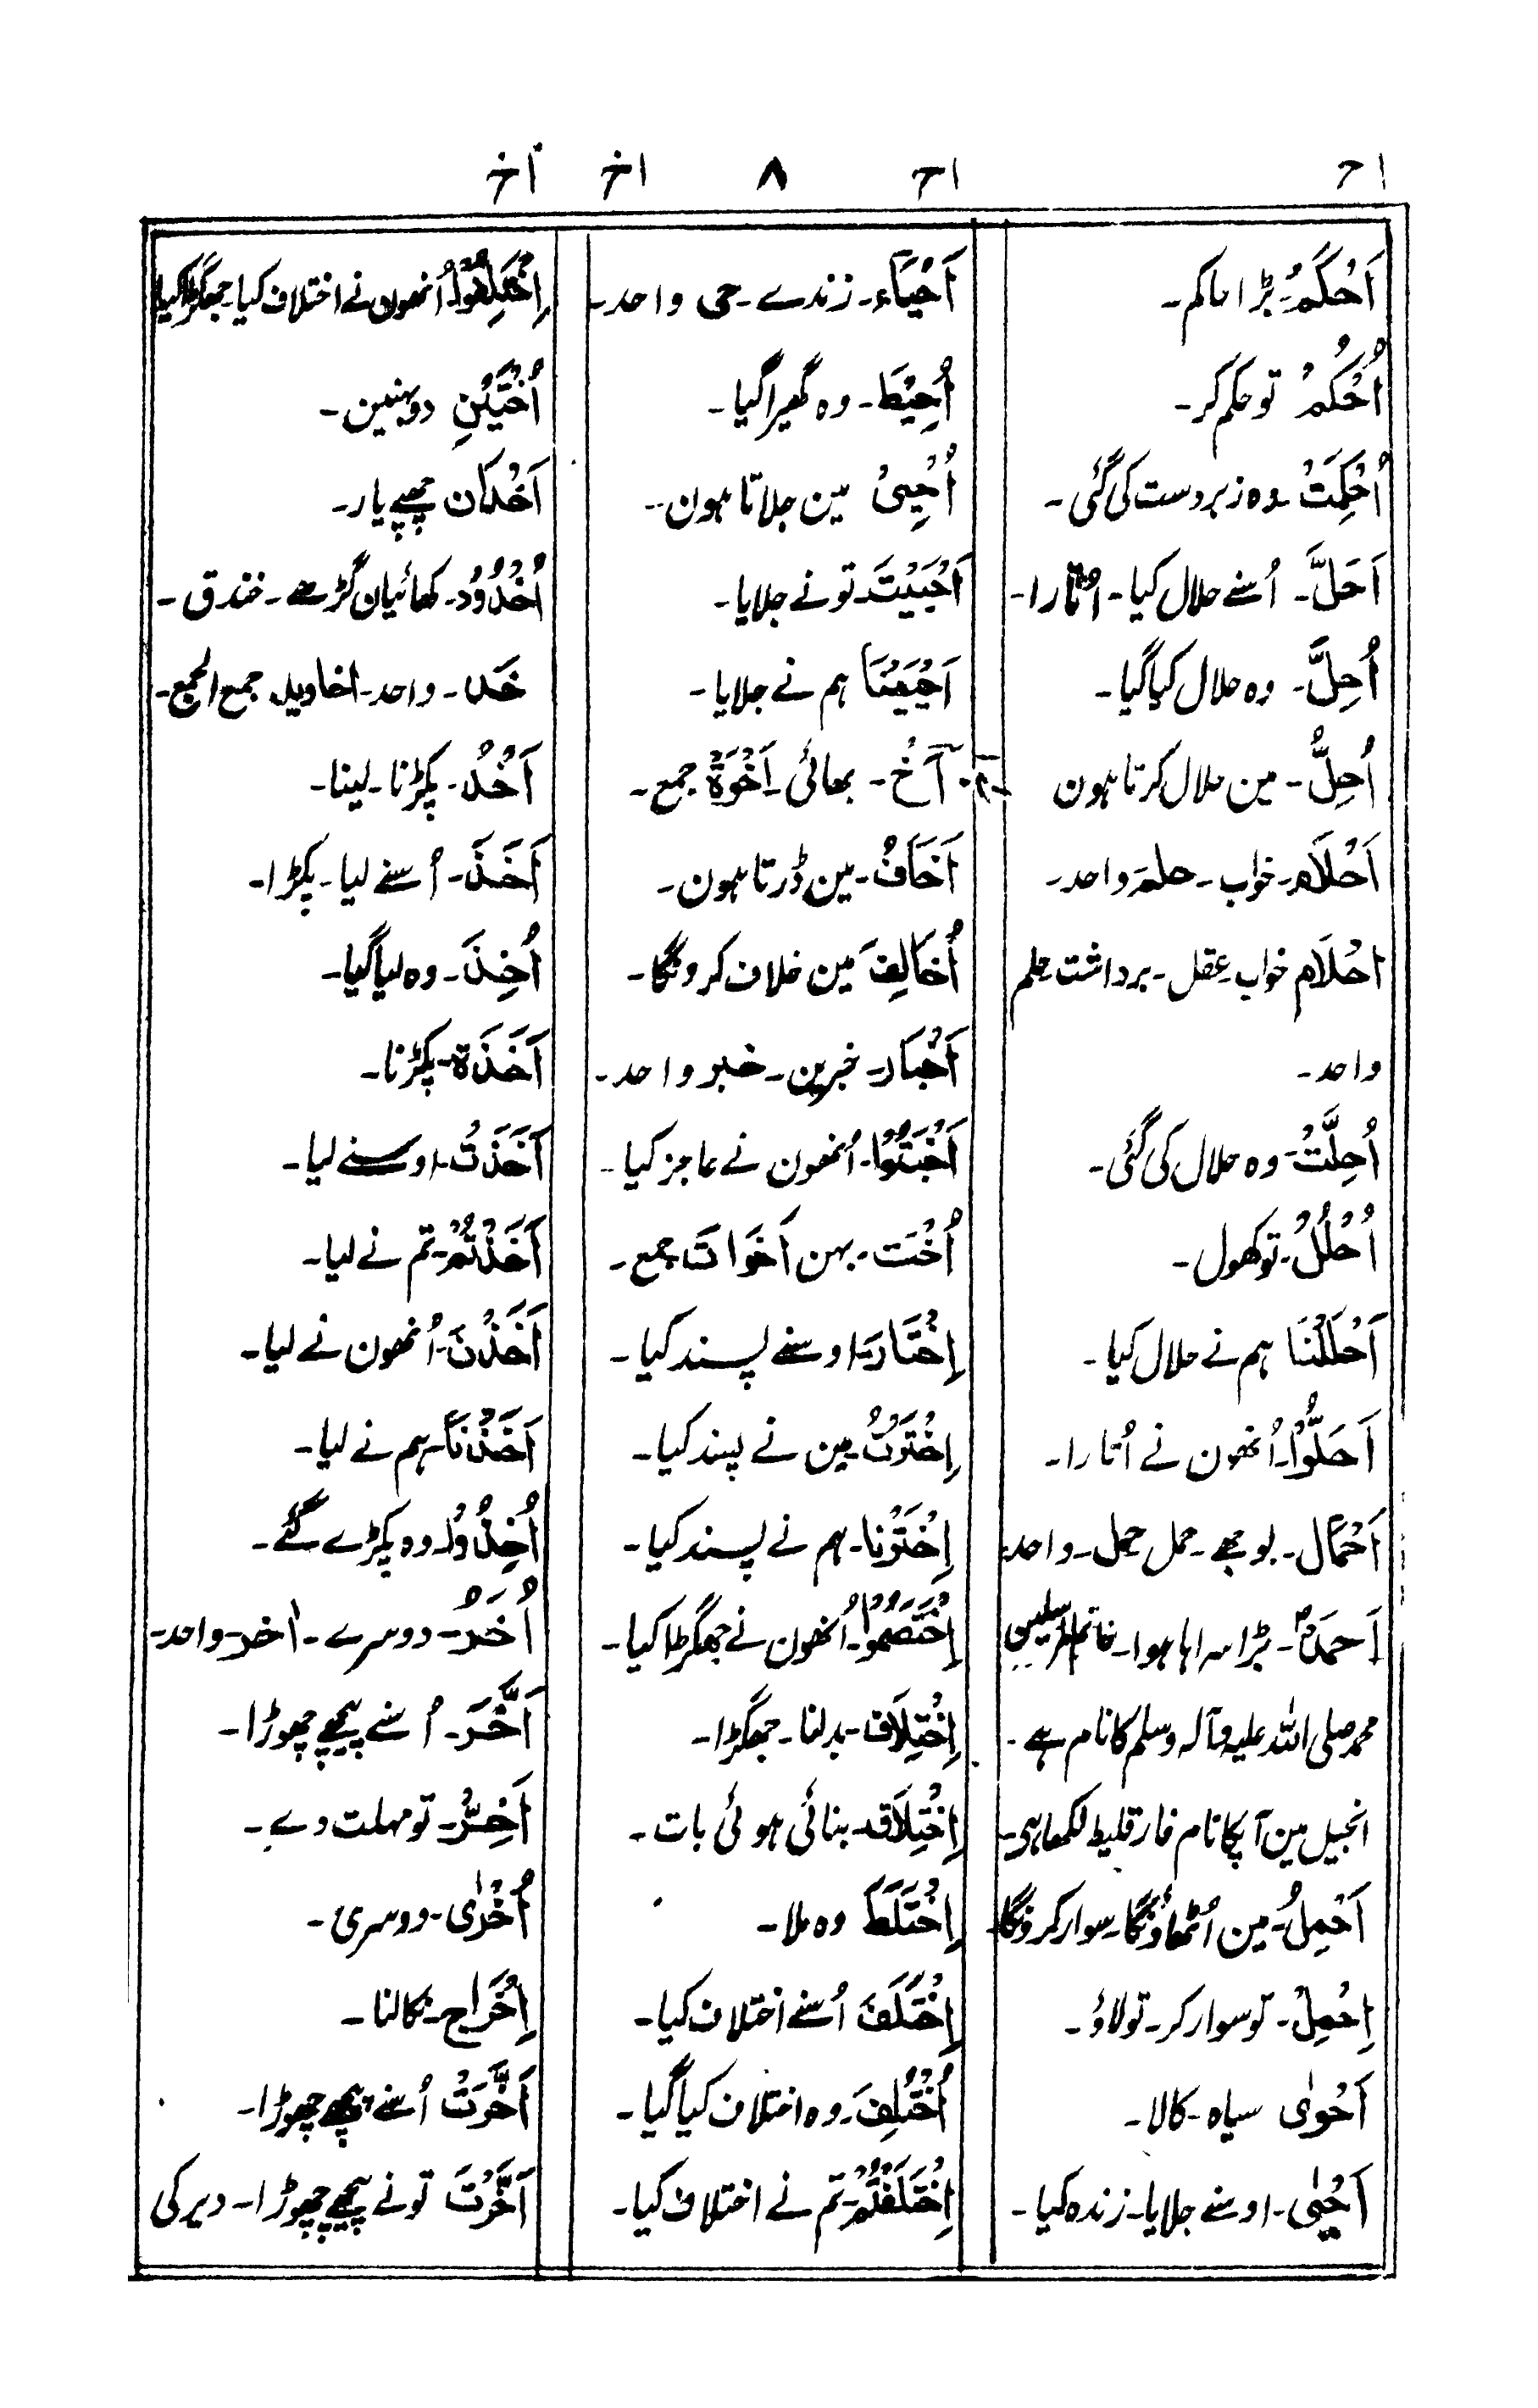 اح
اح
۸
اخ
اخ
اَحْكَمُ۔ بڑا حاکم۔
اُحْكُمْ تو حکم کر۔
اُحْكِمَتْ۔ وہ زبردست کی گئی۔
اَحَلَّ۔ اُسنے حلال کیا۔ اُتارا۔
اُحِلَّ۔ وہ حلال کیا گیا۔
اُحِلُّ۔ مین حلال کرتا ہون
اَحْلَام۔ خواب۔ حلم واحد۔
احْلَام خواب۔ عقل۔ برداشت حلم
واحد۔
اُحِلَّتْ۔ وہ حلال کی گئی۔
اُحْلُلْ۔ تو کھول۔
اَحْلَلْنَا ہم نے حلال کیا۔
اَحَلُّوْا۔ اُنھون نے اُتارا۔
اَحْمَال۔ بوجھے۔ حمل حمل۔ واحد۔
اَحمَدؐ۔ بڑا سراہا ہوا۔ خاتم المرسلین
محمد صلی اللہ علیہ وآلہ وسلم کا نام ہے۔
انجیل مین آپکا نام فارقلیط لکھا ہی۔
اَحْمِلُ۔ مین اُٹھاؤنگا۔ سوار کرونگا۔
اِحْمِلْ۔ تو سوار کر۔ تو لاؤ۔
اَحْوٰى سیاہ۔ کالا۔
اَحْيٰى۔ اوسنے جلایا۔ زندہ کیا۔
اَحْيَاء۔ زندے۔ حی واحد۔
اُحِيْطَ۔ وہ گھیرا گیا۔
اُحْيِىْ مین جلاتا ہون۔
اَحْيَيْتَ۔ تو نے جلایا۔
اَحْيَيْنَا ہم نے جلایا۔
اَخ۔ بھائی۔ اَخْوَةٌ جمع۔
اَخَافُ۔ مین ڈرتا ہون۔
اُخَالِفَ مین خلاف کرونگا۔
اَخْبَار۔ خبرین۔ خبر واحد۔
اَخْبَتُوْا۔ اُنھون نے عاجز کیا۔
اُخْت۔ بہن اَخَوَات جمع۔
اِخْتَارَ۔ اوسنے پسند کیا۔
اِخْتَرْتُ۔ مین نے پسند کیا۔
اِخْتَرْنَا۔ ہم نے پسند کیا۔
اِخْتَصَمُوْا۔ اُنھون نے جھگڑا کیا۔
اِخْتِلَاف۔ بدلنا۔ جھگڑا۔
اِخْتِلَاق۔ بنائی ہوئی بات۔
اِخْتَلَطَ وہ ملا۔
اِخْتَلَفَ اُسنے اختلاف کیا۔
اُخْتُلِفَ۔ وہ اختلاف کیا گیا۔
اِخْتَلَفْتُمْ۔ تم نے اختلاف کیا۔
اِخْتَلَفُوْا۔ اُنھون نے اختلاف کیا۔ جھگڑا کیا
اُخْتَيْنِ دو بہنین۔
اَخْدَان چھپے یار۔
اُخْدُوْد۔ کھائیان گڑھے۔ خندق۔
خَد۔ واحد۔ اخادید جمع الجمع۔
اَخْذ۔ پکڑنا۔ لینا۔
اَخَذَ۔ اُسنے لیا۔ پکڑا۔
اُخِذَ۔ وہ لیا گیا۔
اَخَذَة۔ پکڑنا۔
اَخَذَتْ۔ اوسنے لیا۔
اَخَذْتُمْ۔ تم نے لیا۔
اَخَذْنَ۔ اُنھون نے لیا۔
اَخَذْنَا۔ ہم نے لیا۔
اُخِذُوْا۔ وہ پکڑے گئے۔
اُخَرُ۔ دوسرے۔ اخر۔ واحد۔
اَخَّرَ۔ اُسنے پیچھے چھوڑا۔
اَخِّرْ۔ تو مہلت دے۔
اُخْرٰى۔ دوسری۔
اِخْرَاج۔ نکالنا۔
اَخَّرَتْ اُسنے پیچھے چھوڑا۔
اَخَّرْتَ تو نے پیچھے چھوڑا۔ دیر کی